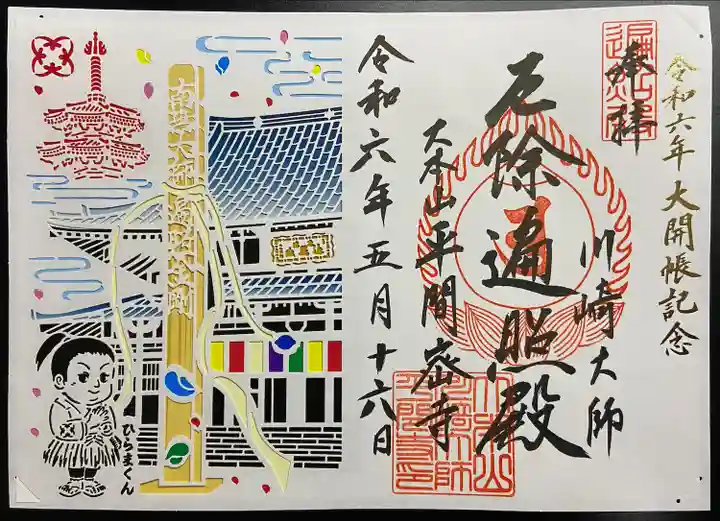 令和六年 大開帳記念
奉拝
川崎大師
厄除遍照殿
大本山平間密寺
令和六年五月十六日
南無大師遍照金剛
ひらまくん